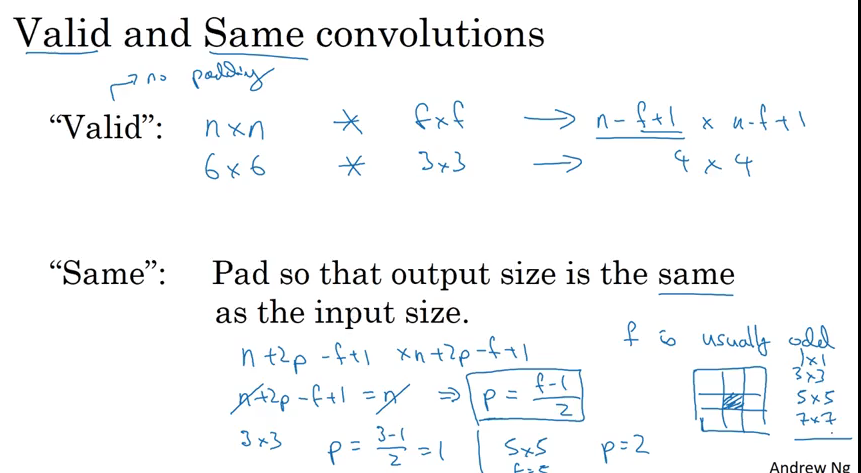 Valid and Same convolutions
→ no padding
"Valid": n×n * f×f → n-f+1 × n-f+1
6×6 * 3×3 → 4 × 4
"Same": Pad so that output size is the same
as the input size.
n+2p-f+1 ×n+2p-f+1
n+2p-f+1 = n ⇒ p = f-1/2
3×3 p = 3-1/2 = 1 | 5×5 p=2
f is usually odd
1×1
3×3
5×5
7×7
Andrew Ng